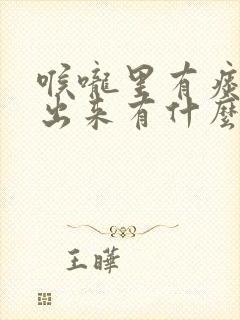 喉嚨里有痰
出来有什麼
王曄